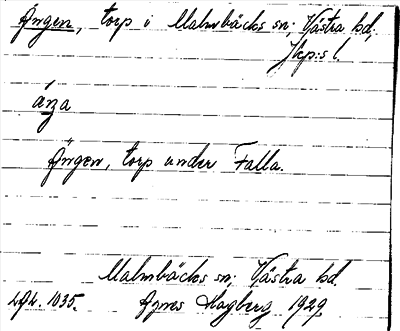 Ängen, torp i Malmbäcks sn; Västra hd,
Jkp:s l.
áŋa
Ängen, torp under Falla.
Malmbäcks sn; Västra hd.
Agnes Hagberg 1929